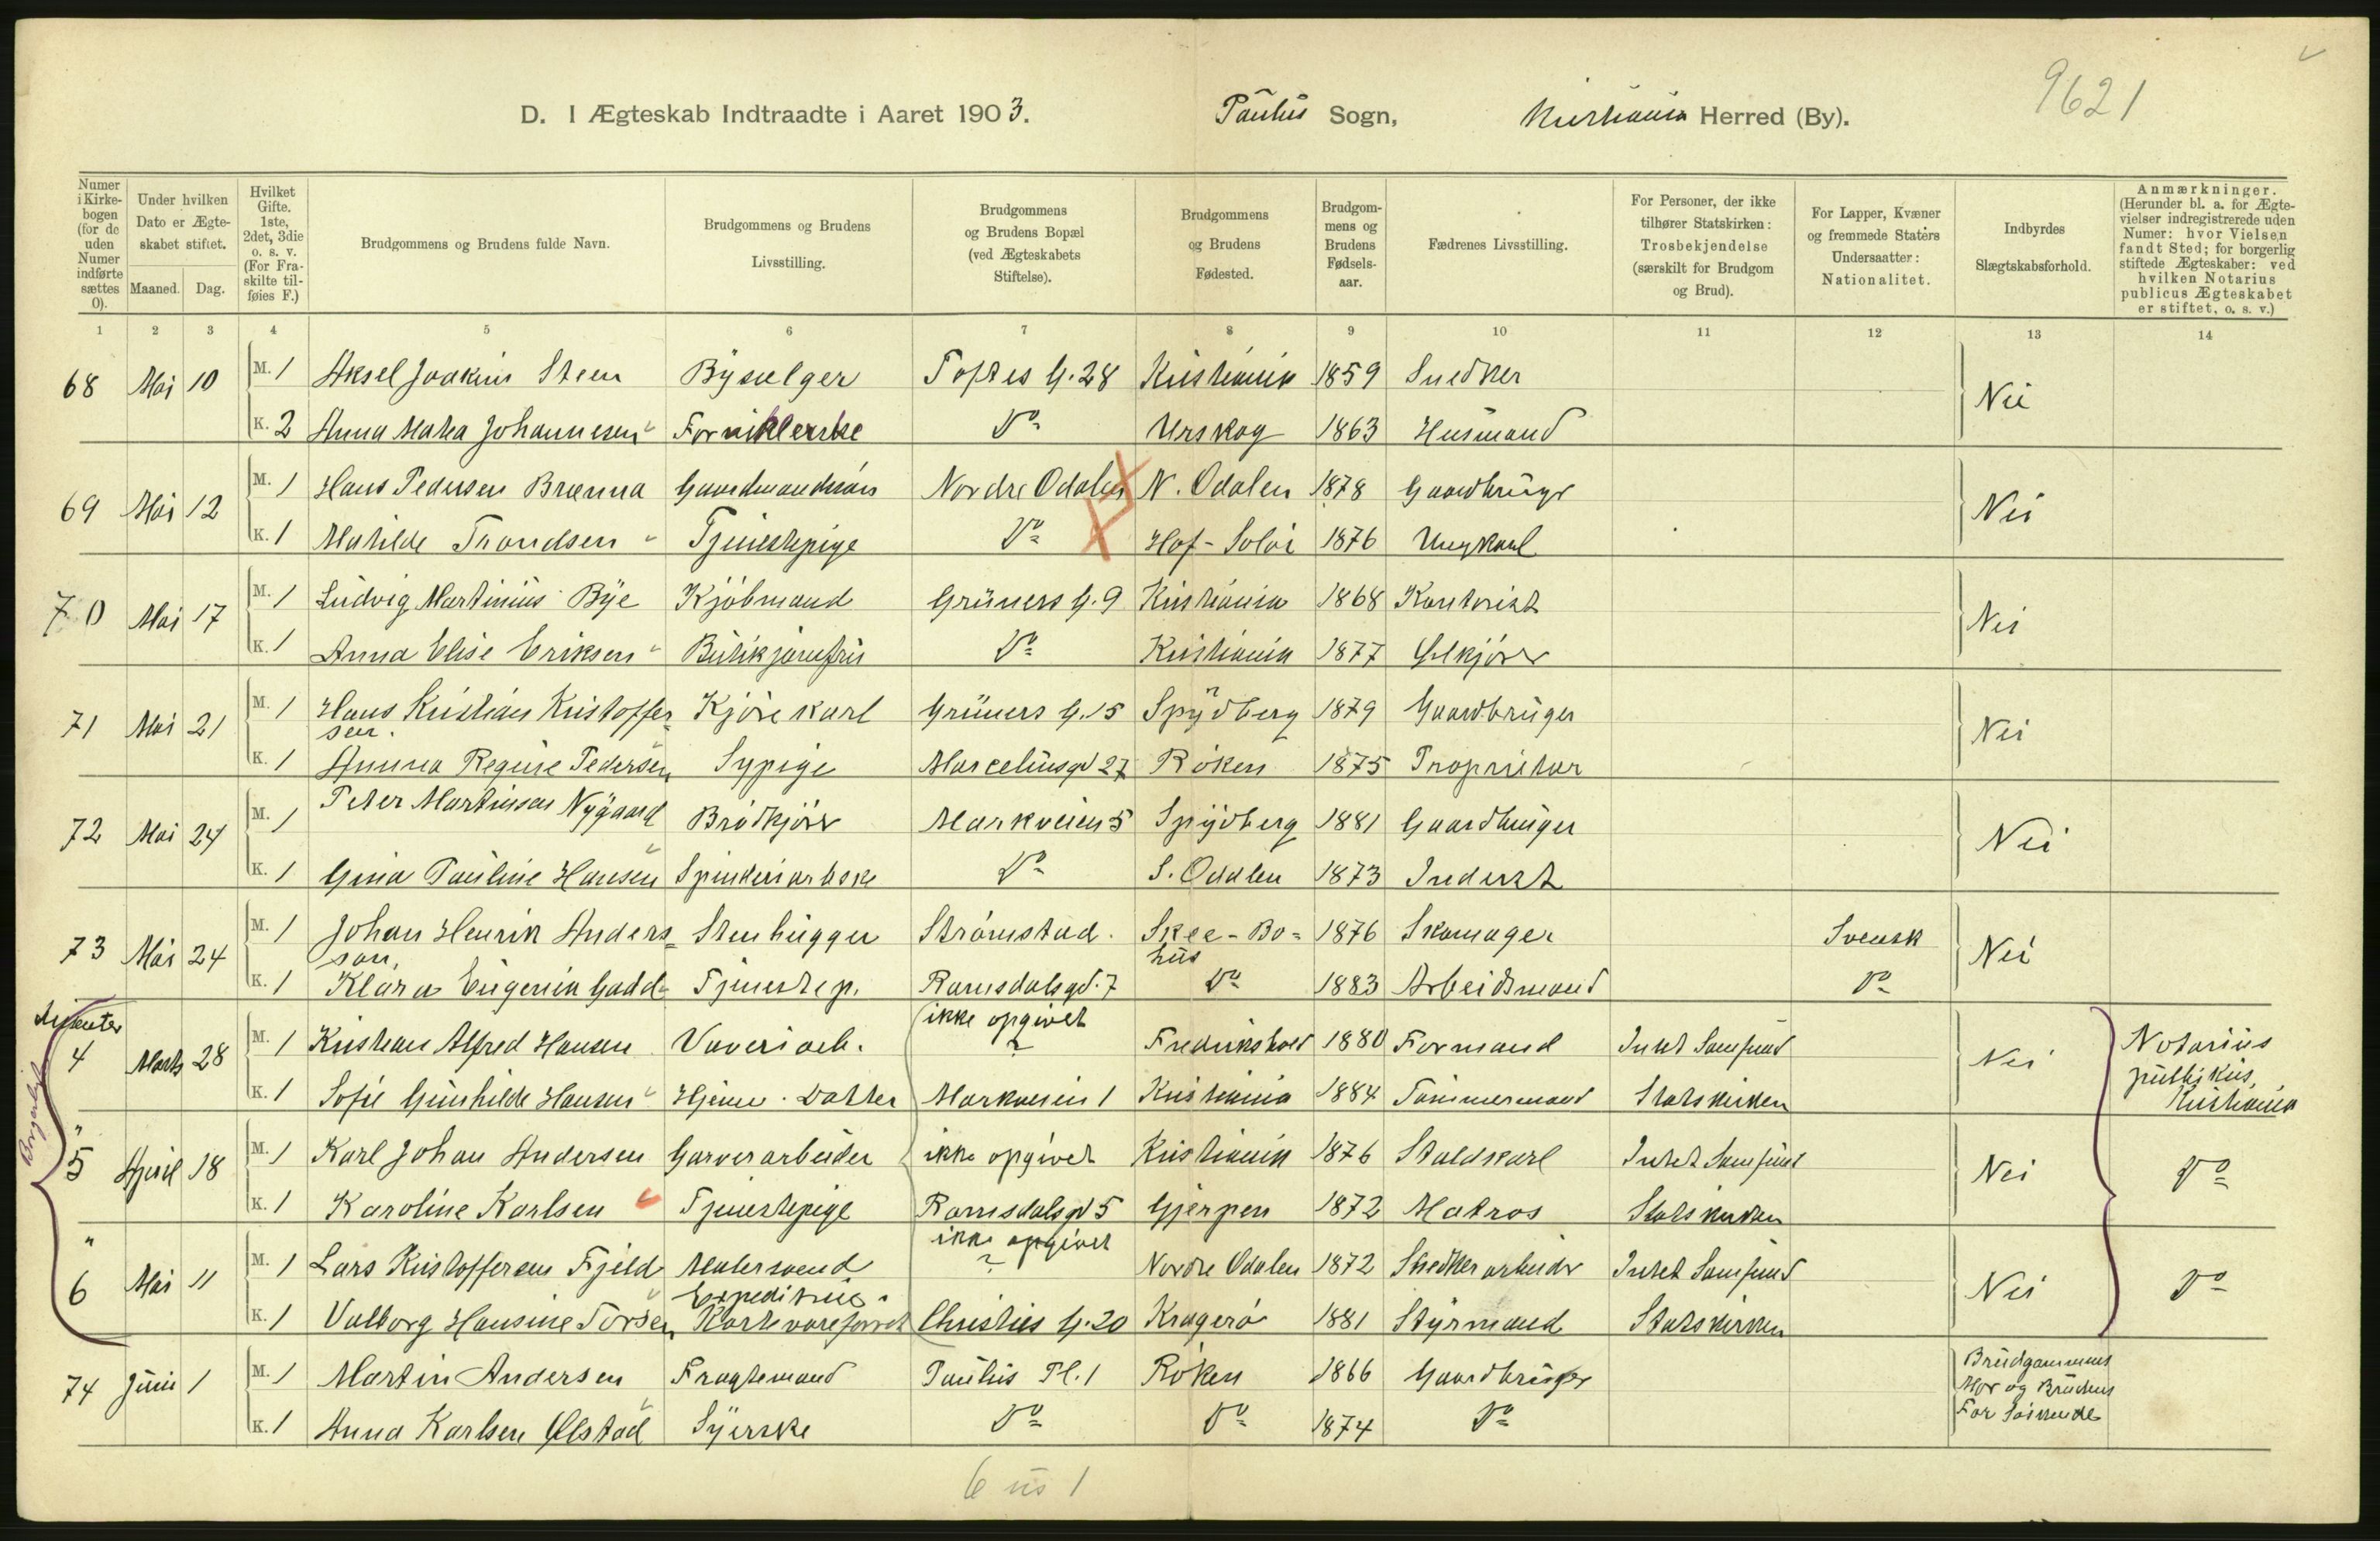 9621
D. I Ægteskab Indtraadte i Aaret 1903. Paulus Sogn, Kristiania Herred (By).
Numer i Kirkebogen (for de uden Numer indførte sættes 0).
Under hvilken Dato er Ægteskabet stiftet.
Maaned. Dag.
Hvilket Gifte. 1ste, 2det, 3die o. s. v. (For Fraskilte tilføies F.)
Brudgommens og Brudens fulde Navn.
Brudgommens og Brudens Livsstilling.
Brudgommens og Brudens Bopæl (ved Ægteskabets Stiftelse).
Brudgommens og Brudens Fødested.
Brudgommens og Brudens Fødselsaar.
Fædrenes Livsstilling.
For Personer, der ikke tilhører Statskirken: Trosbekjendelse (særskilt for Brudgom og Brud).
For Lapper, Kvæner og fremmede Staters Undersaatter: Nationalitet.
Indbyrdes Slægtskabsforhold.
Anmærkninger. (Herunder bl. a. for Ægtevielser indregistrerede uden Numer: hvor Vielsen fandt Sted; for borgerlig stiftede Ægteskaber: ved hvilken Notarius publicus Ægteskabet er stiftet, o. s. v.)
1 2 3 4 5 6 7 8 9 10 11 12 13 14
68 Mai 10 M. 1 Aksel Joakim Steen Byselger Toftes G. 28 Kristiania 1859 Snedker Nei
K. 2 Anna Maria Johannesen Forniklerske Do Urskog 1863 Husmand
69 Mai 12 M. 1 Hans Pedersen Brænna Gaardmandssøn Nordre Odalen N. Odalen 1878 Gaardbruger Nei
K. 1 Matilde Trondsen Tjenestepige Do Hof-Solør 1876 Ungkarl
70 Mai 17 M. 1 Ludvig Martinius Bye Kjøbmand Grüners G. 9 Kristiania 1868 Kontorist Nei
K. 1 Anna Elise Eriksen Butikjomfru Do Kristiania 1877 Ølkjører
71 Mai 21 M. 1 Hans Kristian Kristoffersen. Kjørekarl Grüners G. 15 Spydberg 1879 Gaardbruger Nei
K. 1 Anna Regine Pedersen Sypige Marcelusgd 27 Røken 1875 Proprietær
72 Mai 24 M. 1 Peter Martinsen Nygaard Brødkjører Markveien 5 Spydberg 1881 Gaardbruger Nei
K. 1 Gina Pauline Hansen Spinderiarbske Do S. Odalen 1873 Inderst
73 Mai 24 M. 1 Johan Henrik Andersson, Stenhugger Strømstad. Skee-Bohus 1876 Skomager Svensk Nei
K. 1 Klara Eugenia Gadd Tjenestep. Ramsdalsgd. 7 Do 1883 Arbeidsmand Do
Borgerlige
Dissenter
4 Marts 28 M. 1 Kristian Alfred Hansen Væveriarb. ikke opgivet ? Fredrikshald 1880 Formand Intet Samfund Nei Notarius publikus, Kristiania
K. 1 Sofie Gunhilde Hansen Hjemv. Datter Markveien 1 Kristiania 1884 Tømmermand Statskirken
" 5 April 18 M. 1 Karl Johan Andersen Garverarbeider ikke opgivet Kristiania 1876 Staldkarl Intet Samfund Nei Do
K. 1 Karoline Karlsen Tjenestepige Ramsdalsgd 5 Gjerpen 1872 Matros Statskirken
" 6 Mai 11 M. 1 Lars Kristoffersen Fjeld Malersvend ikke opgivet ? Nordre Odalen 1872 Snedkerarbeider Intet Samfund Nei Do
K. 1 Valborg Hansine Torsen Expeditrice. Christies G. 20 Kragerø 1881 Styrmand Statskirken
74 Juni 1 M. 1 Martin Andersen Fragtemand Paulus Pl. 1 Røken 1866 Gaardbruger Brudgommens Mor og Brudens Far Søskende
K. 1 Anna Karlsen Ølstad Syerske Do Do 1874 Do